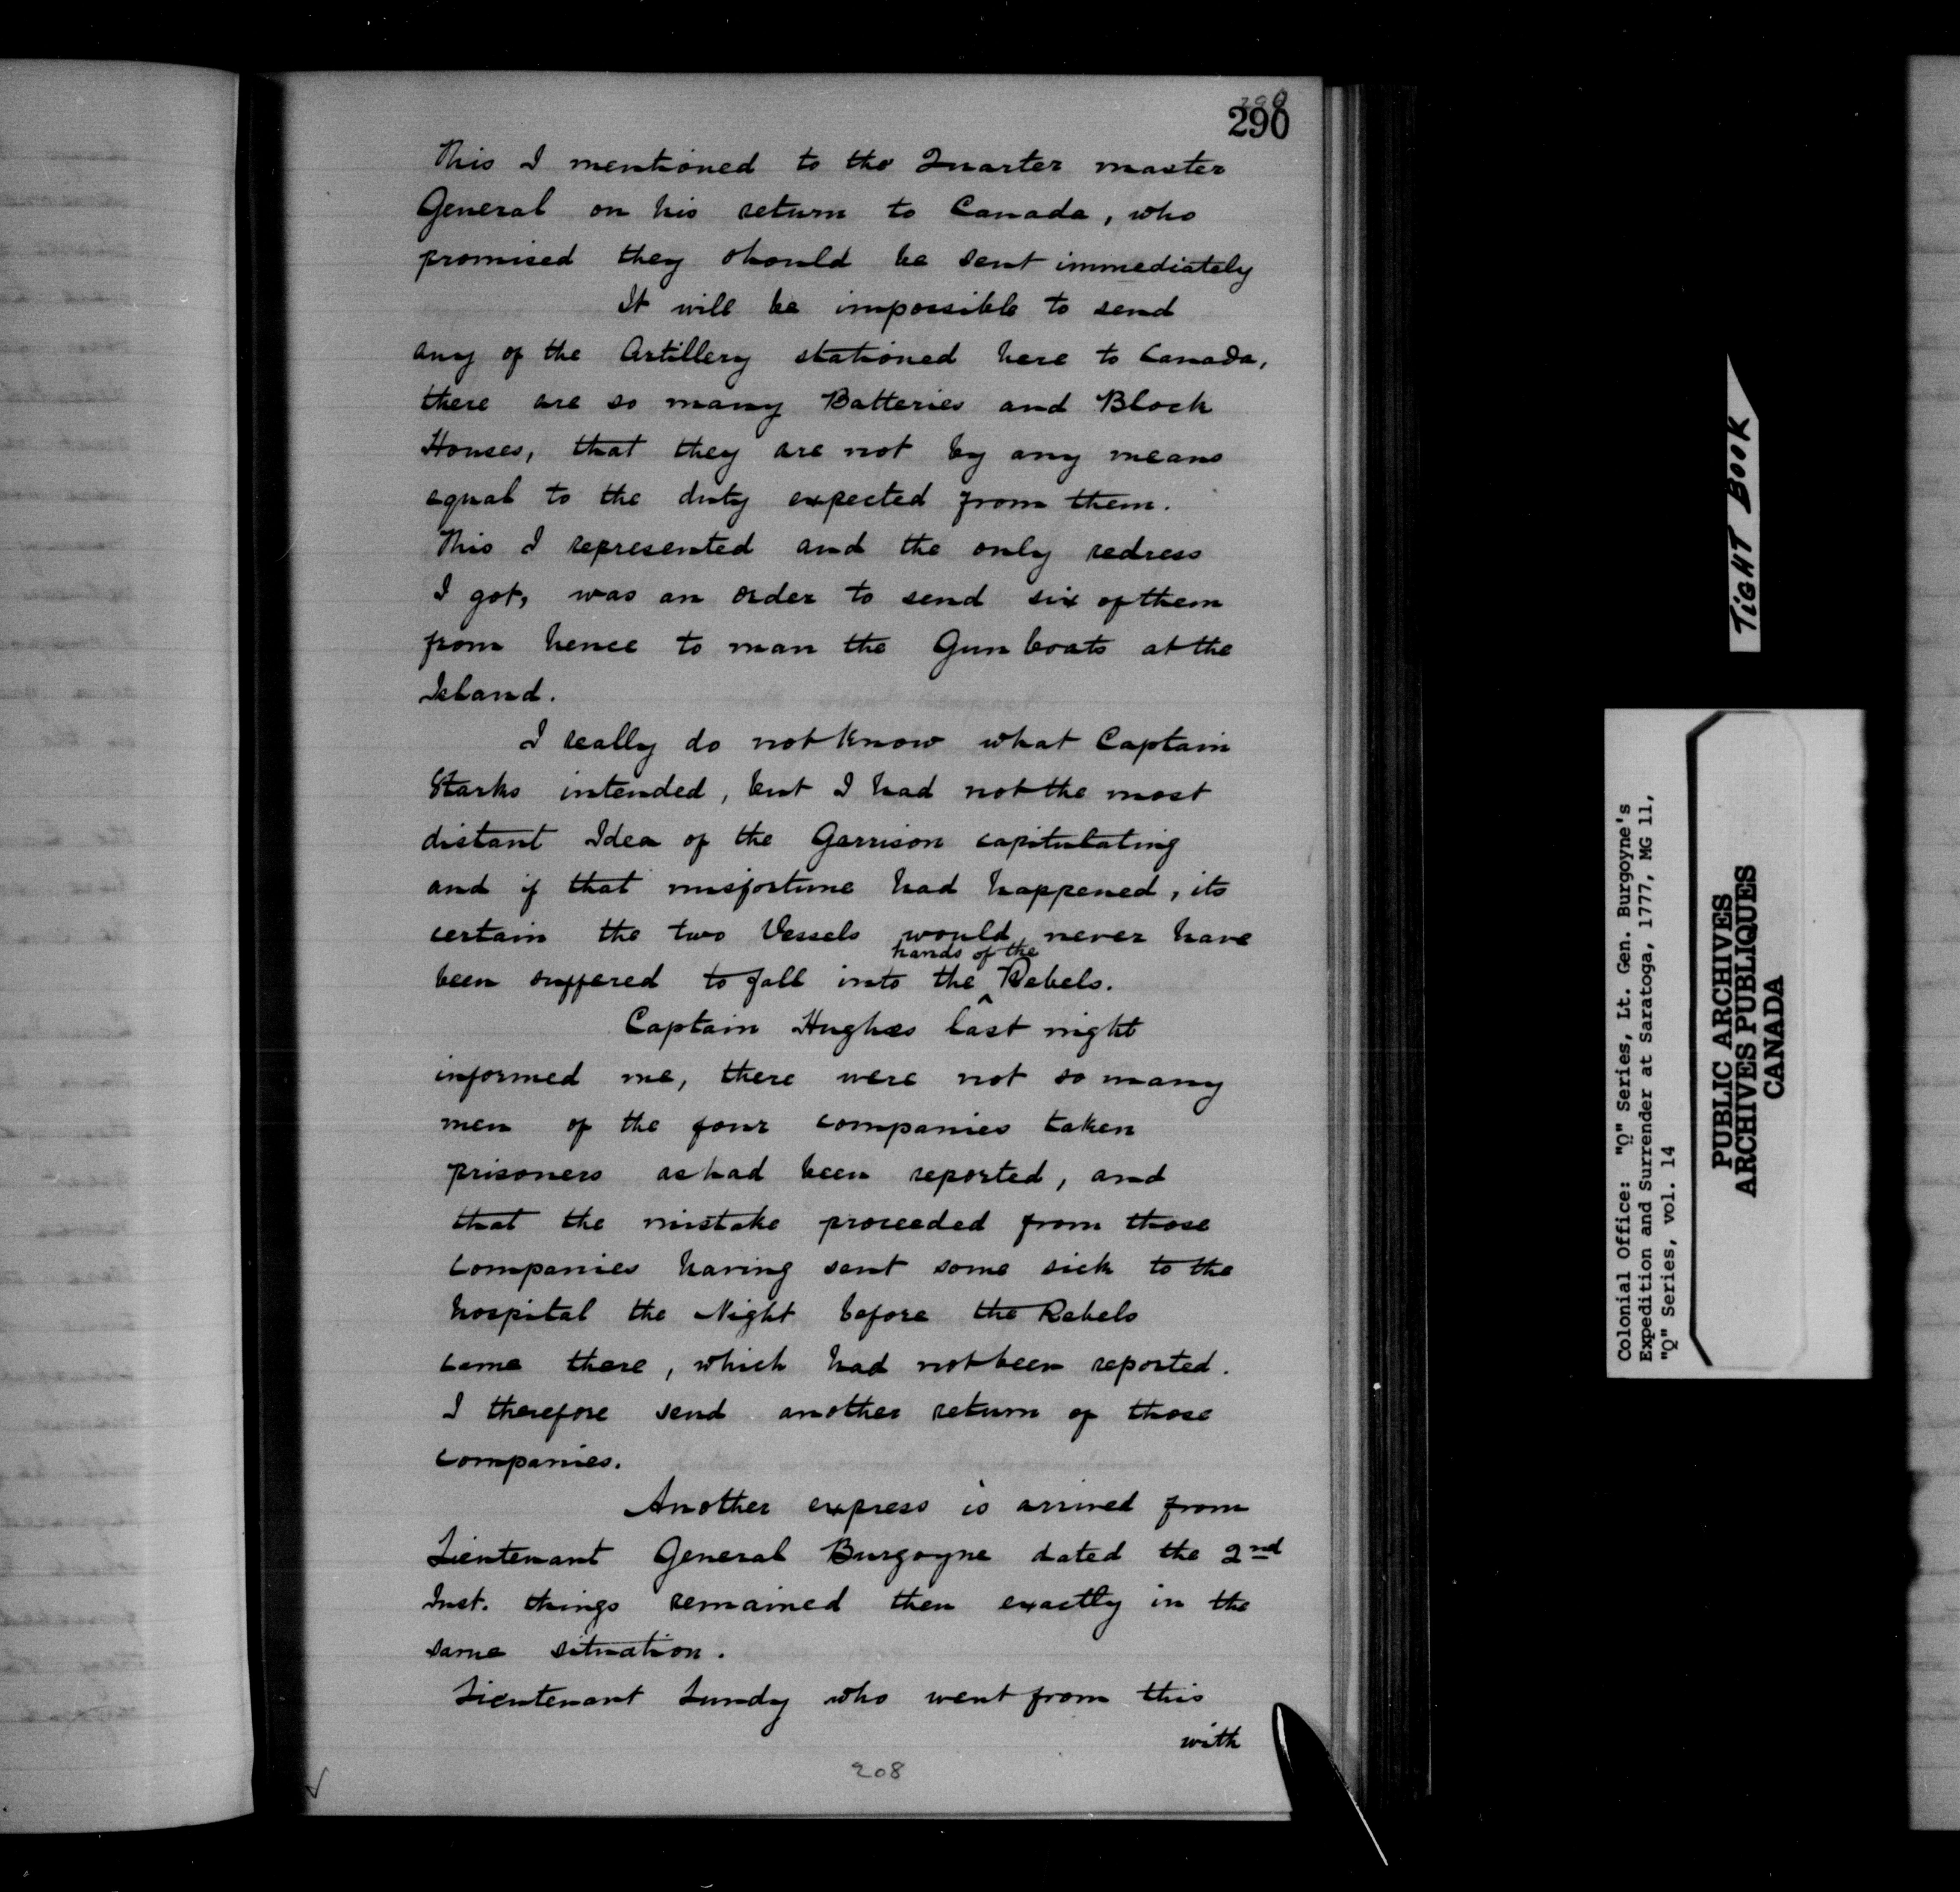 290
This I mentioned to the Quarter master
General on his return to Canada, who
promised they should be sent immediately
It will be impossible to send
any of the Artillery stationed here to Canada,
there are so many Batteries and Block
Houses, that they are not by any means
equal to the duty expected from them.
This I represented and the only redress
I got, was an order to send six of them
from hence to man the Gun boats at the
Island.
I really do not know what Captain
Starks intended, but I had not the most
distant Idea of the Garrison capitulating
and if that misfortune had happened, its
certain the two Vessels would never have
hands of the
been suffered to fall into the ^ Rebels.
Captain Hughes last night
informed me, there were not so many
men of the four companies taken
prisoners as had been reported, and
that the mistake proceeded from those
Companies having sent some sick to the
hospital the Night before the Rebels
came there, which had not been reported.
I therefore send another return of those
Companies.
Another express is arrived from
Lieutenant General Burgoyne dated the 2nd
Inst. things remained then exactly in the
same situation.
Lieutenant Lundy who went from this
with
208
TIGHT BOOK
Colonial Office: "Q" Series, Lt. Gen. Burgoyne's
Expedition and Surrender at Saratoga, 1777, MG 11,
"Q" Series, vol. 14
PUBLIC ARCHIVES
ARCHIVES PUBLIQUES
CANADA